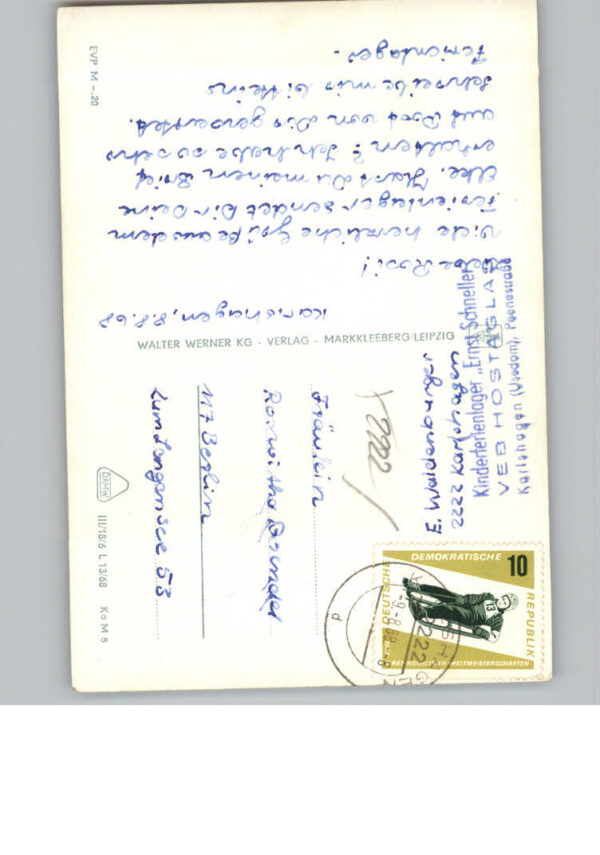 Karlshagen, 8.8.68
Liebe Rosi!
Viele herzliche Grüße aus dem
Ferienlager sendet Dir Deine
Elke. Hast Du meinen Brief
erhalten? Ich habe so sehr
auf Post von Dir gewartet.
Schreibe mir bitte ins
Ferienlager.
EVP M -.20
WALTER WERNER KG · VERLAG · MARKKLEEBERG/LEIPZIG
E. Waldenburger
2222 Karlshagen
Kinderferienlager „Ernst Schneller"
VEB HOSTAGLAS
Karlshagen (Usedom), Peenestraße
2222
Fräulein
Roswitha
117 Berlin
Zum Langen See 53
DAMW
III/18/6 L 13/68 KoM 8
DEUTSCHE
DEMOKRATISCHE
REPUBLIK
10
13
RENNSCHLITTEN-WELTMEISTERSCHAFTEN
-9.-8.68
2222
d